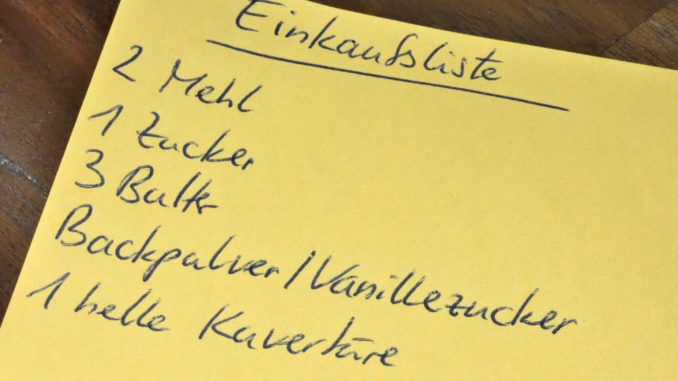 Einkaufsliste
2 Mehl
1 Zucker
3 Butter
Backpulver / Vanillezucker
1 helle Kuvertüre